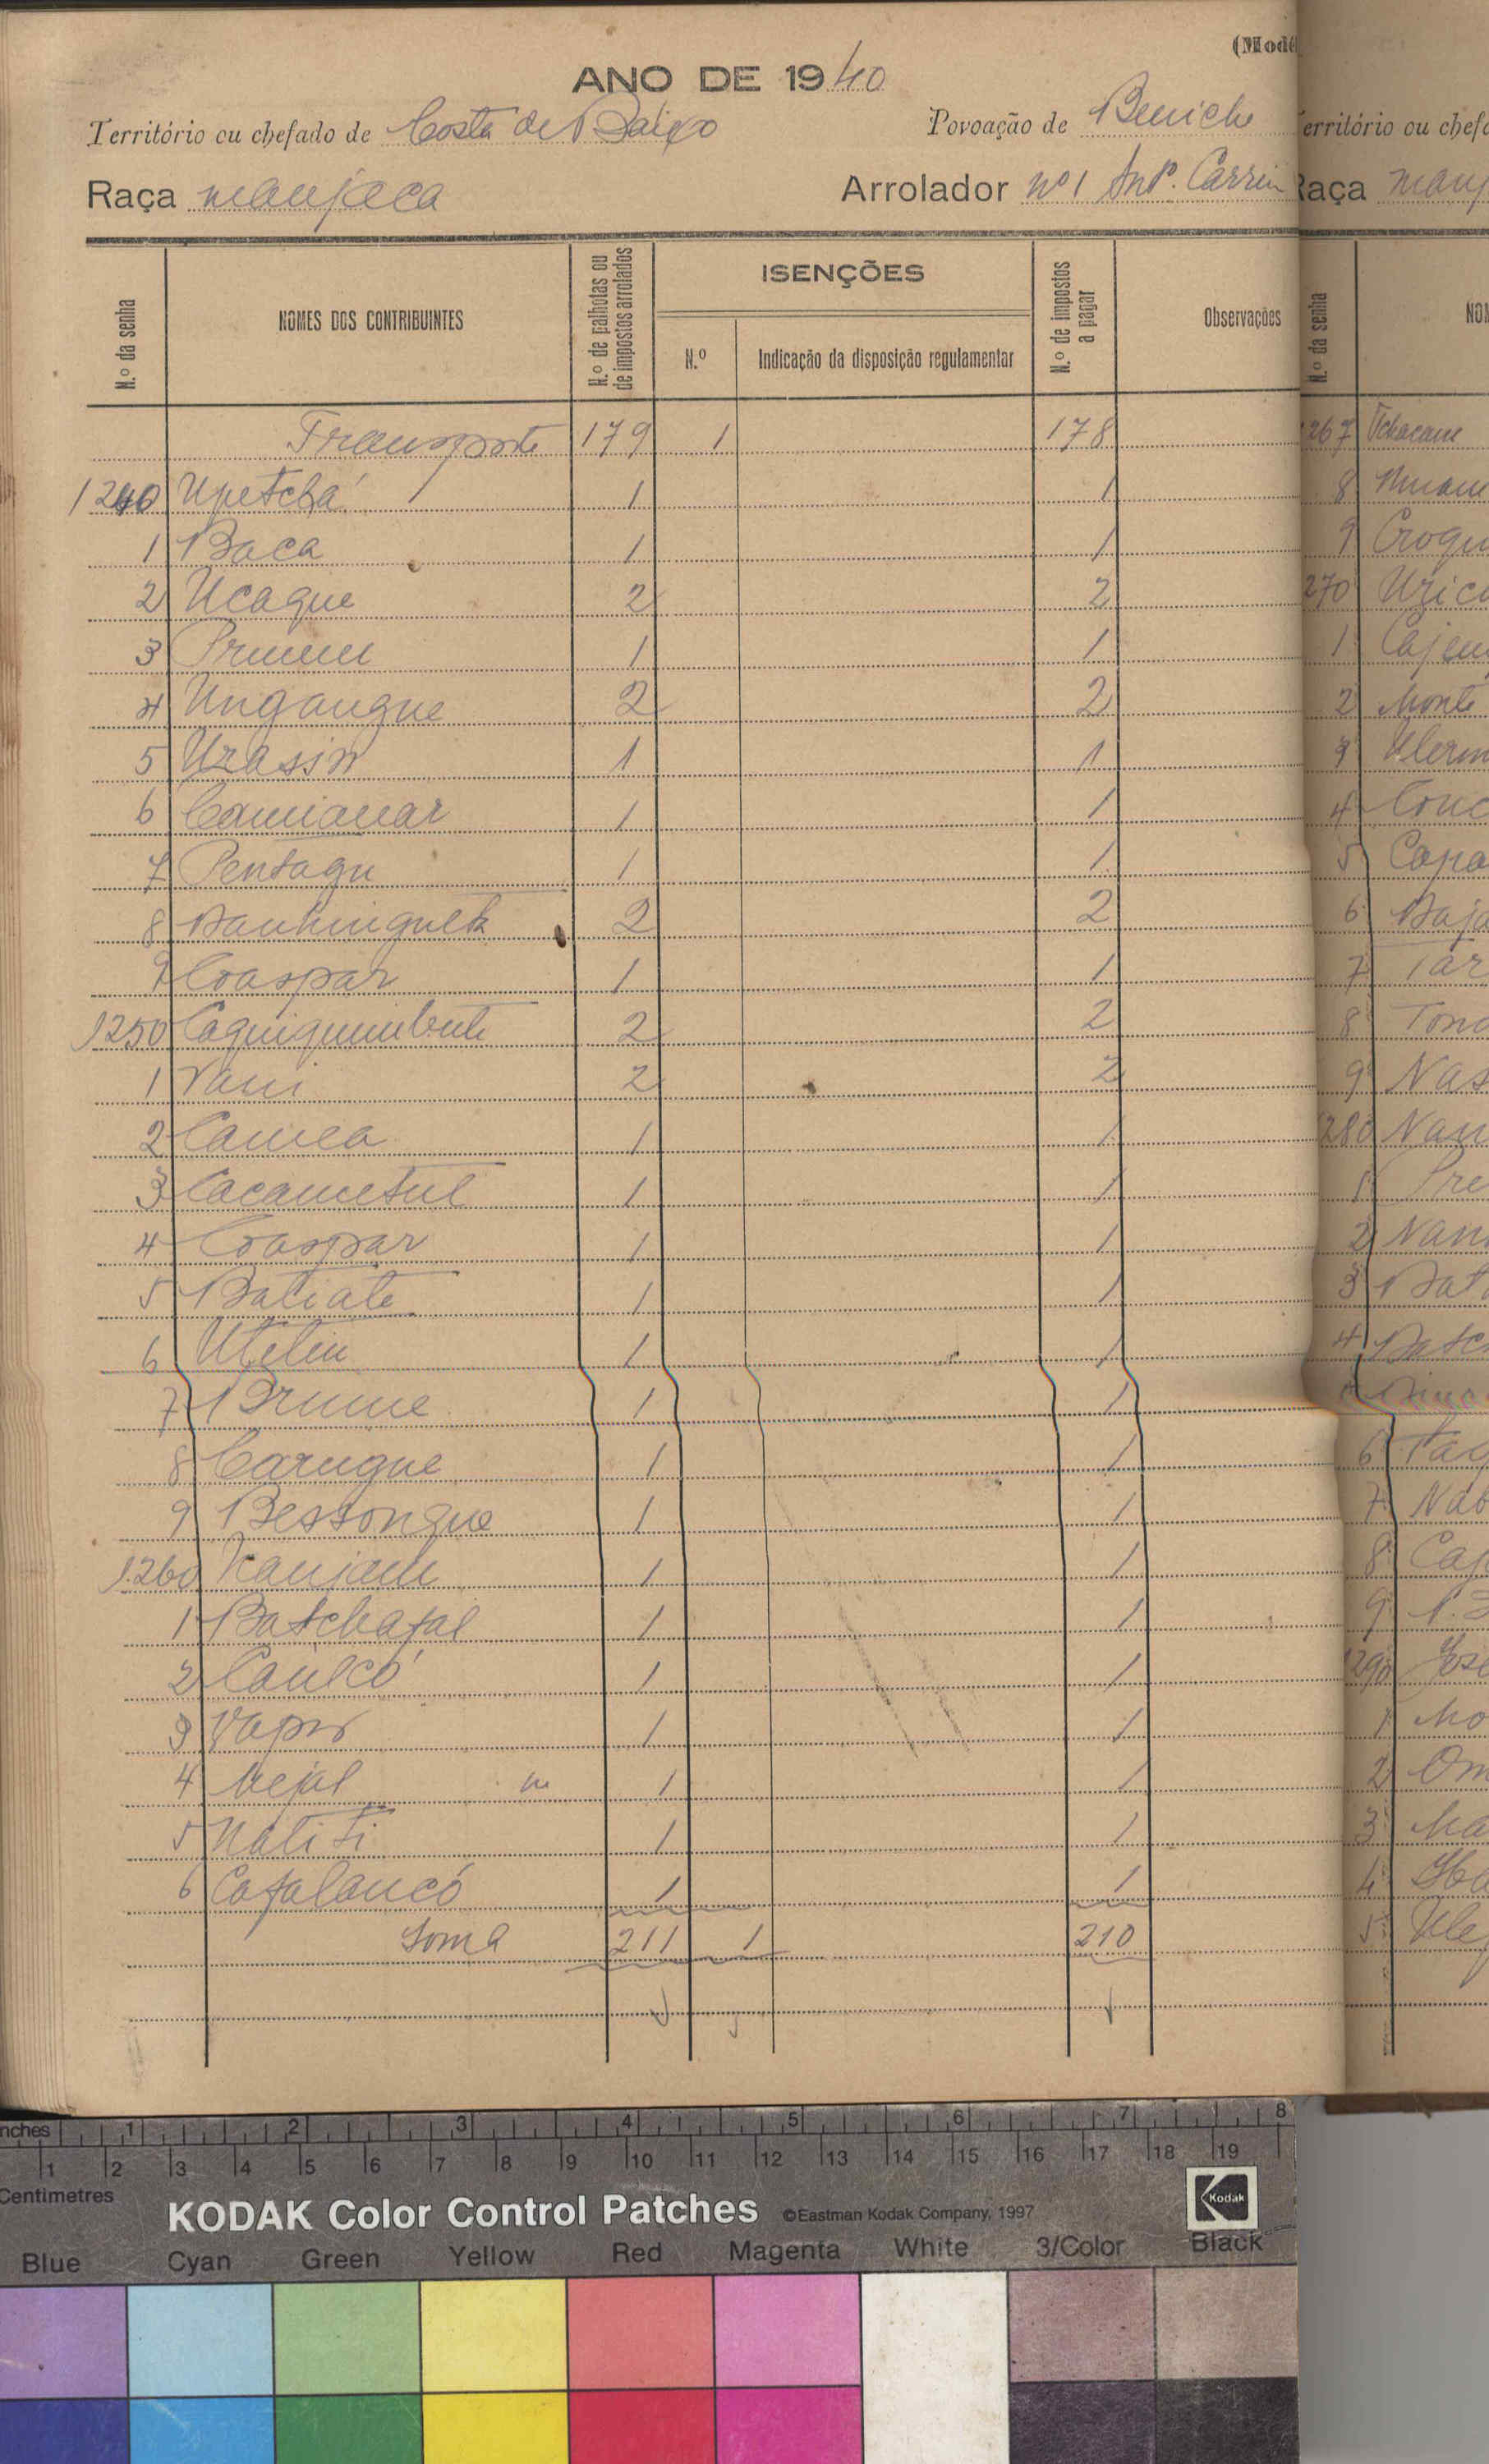 (Mod
ANO DE 1940
Território ou chefado de Costa de Baixo
Povoação de Beniche
Raça manjaca
Arrolador nº 1 Int. Carrei
N.º da senha
NOMES DOS CONTRIBUINTES
N.º de palhotas ou de impostos arrolados
ISENÇÕES
N.º
Indicação da disposição regulamentar
N.º de impostos a pagar
Observações
Transporte 179 1 178
1240 Upetchá 1 1
1 Baca 1 1
2 Ucaque 2 2
3 1 1
4 Ungangue 2 2
5 Urassin 1 1
6 Camianar 1 1
7 Pentagu 1 1
8 2 2
9 Coaspar 1 1
1250 2 2
1 Vani 2 2
2 Camea 1 1
3 Cacametul 1 1
4 Coaspar 1 1
5 Batiate 1 1
6 Utelin 1 1
7 Brume 1 1
8 Carugue 1 1
9 Bessongue 1 1
1260 1 1
1 Batchafal 1 1
2 Caulcó 1 1
3 1 1
4 1 1
5 Natiti 1 1
6 Cafalancó 1 1
Soma 211 1 210
erritório ou chefa
Raça manj
N.º da senha
NOM
267 Tchacam
8
9 Croqu
270 Uric
1 Cajen
2 Monte
3 Ulerm
4 Conc
5 Capa
6 Baja
7 Tar
8 Tono
9 Nas
1280 Nan
1 Pre
2 Nan
3 Bat
4 Batc
6
7 Nab
8 Cap
9
1290 José
1 Mo
2 Om
3 Ma
4
5 Ule
nches 1 2 3 4 5 6 7 8
1 2 3 4 5 6 7 8 9 10 11 12 13 14 15 16 17 18 19
Centimetres
KODAK Color Control Patches ©Eastman Kodak Company, 1997 Kodak
Blue Cyan Green Yellow Red Magenta White 3/Color Black